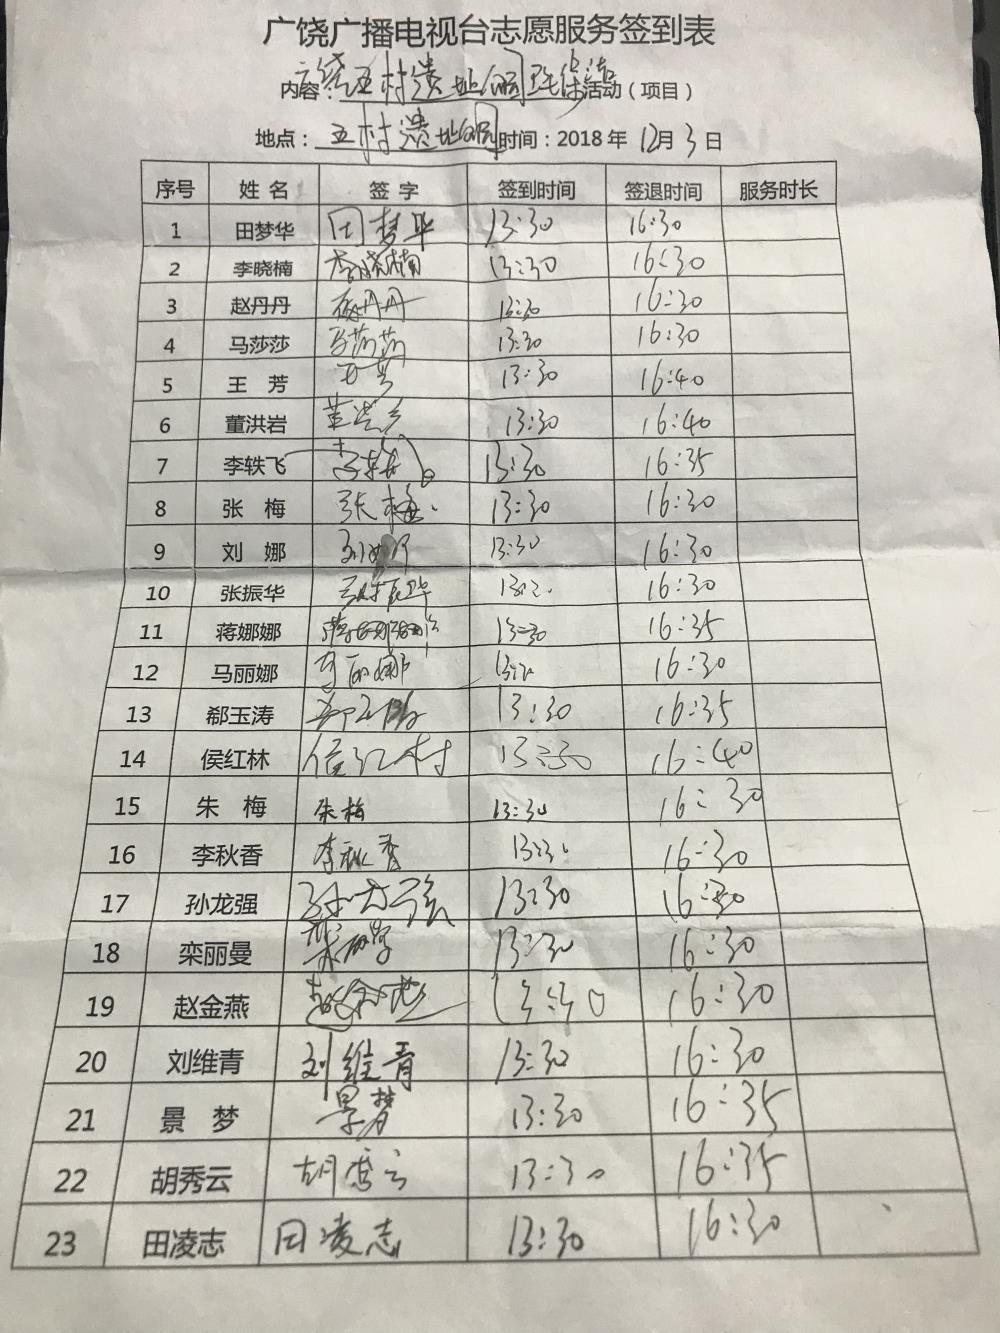 广饶广播电视台志愿服务签到表
内容：广饶五村遗址公园卫生保洁活动（项目）
地点：五村遗址公园时间：2018 年 12月 3 日
序号 姓 名 签 字 签到时间 签退时间 服务时长
1 田梦华 田梦华 13:30 16:30
2 李晓楠 李晓楠 13:30 16:30
3 赵丹丹 赵丹丹 13:30 16:30
4 马莎莎 马莎莎 13:30 16:30
5 王 芳 王芳 13:30 16:40
6 董洪岩 董洪岩 13:30 16:40
7 李轶飞 李轶飞 13:30 16:35
8 张 梅 张梅 13:30 16:30
9 刘 娜 刘娜 13:30 16:30
10 张振华 张振华 13:30 16:30
11 蒋娜娜 蒋娜娜 13:30 16:35
12 马丽娜 13:30 16:30
13 郗玉涛 郗玉涛 13:30 16:35
14 侯红林 侯红林 13:30 16:40
15 朱 梅 朱梅 13:30 16:30
16 李秋香 李秋香 13:30 16:30
17 孙龙强 孙龙强 13:30 16:30
18 栾丽曼 栾丽曼 13:30 16:30
19 赵金燕 赵金燕 13:30 16:30
20 刘维青 刘维青 13:30 16:30
21 景 梦 景梦 13:30 16:35
22 胡秀云 胡秀云 13:30 16:35
23 田凌志 田凌志 13:30 16:30